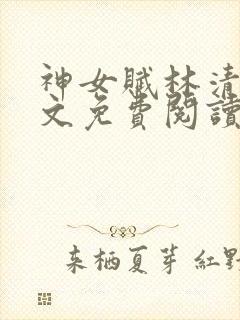 神女賦林清
文免費閱讀
来栖夏芽 紅野